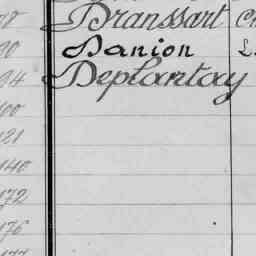 Branssart
90 Danion L
94 Deplantay
100
121
140
172
176